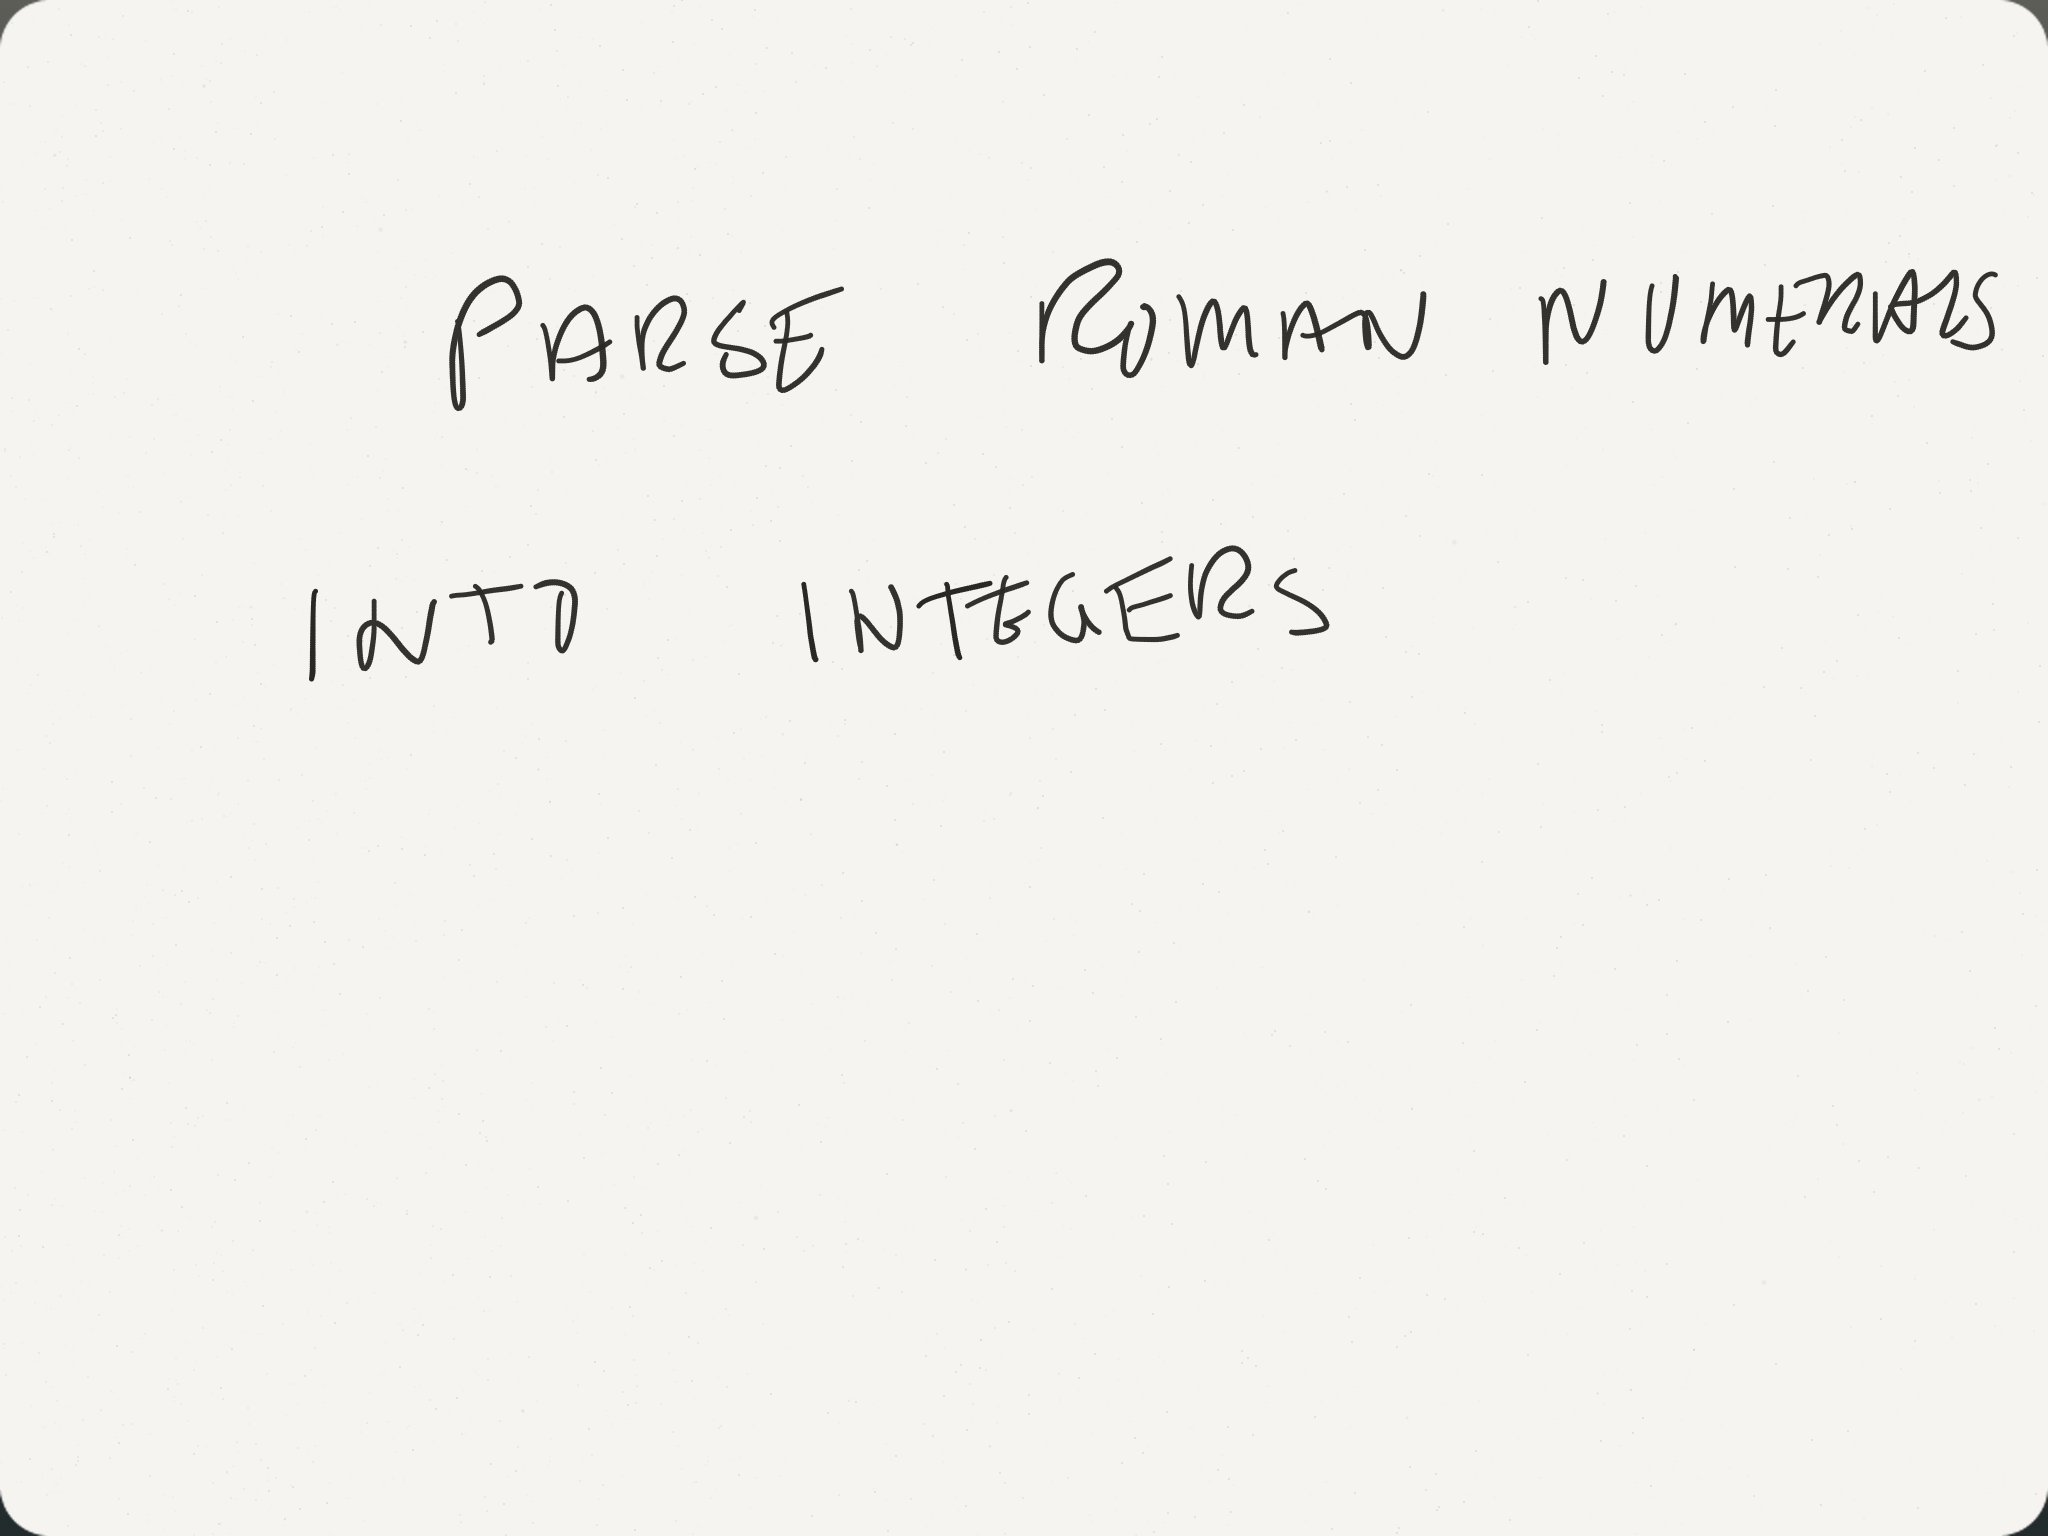 PARSE ROMAN NUMERALS
INTO INTEGERS